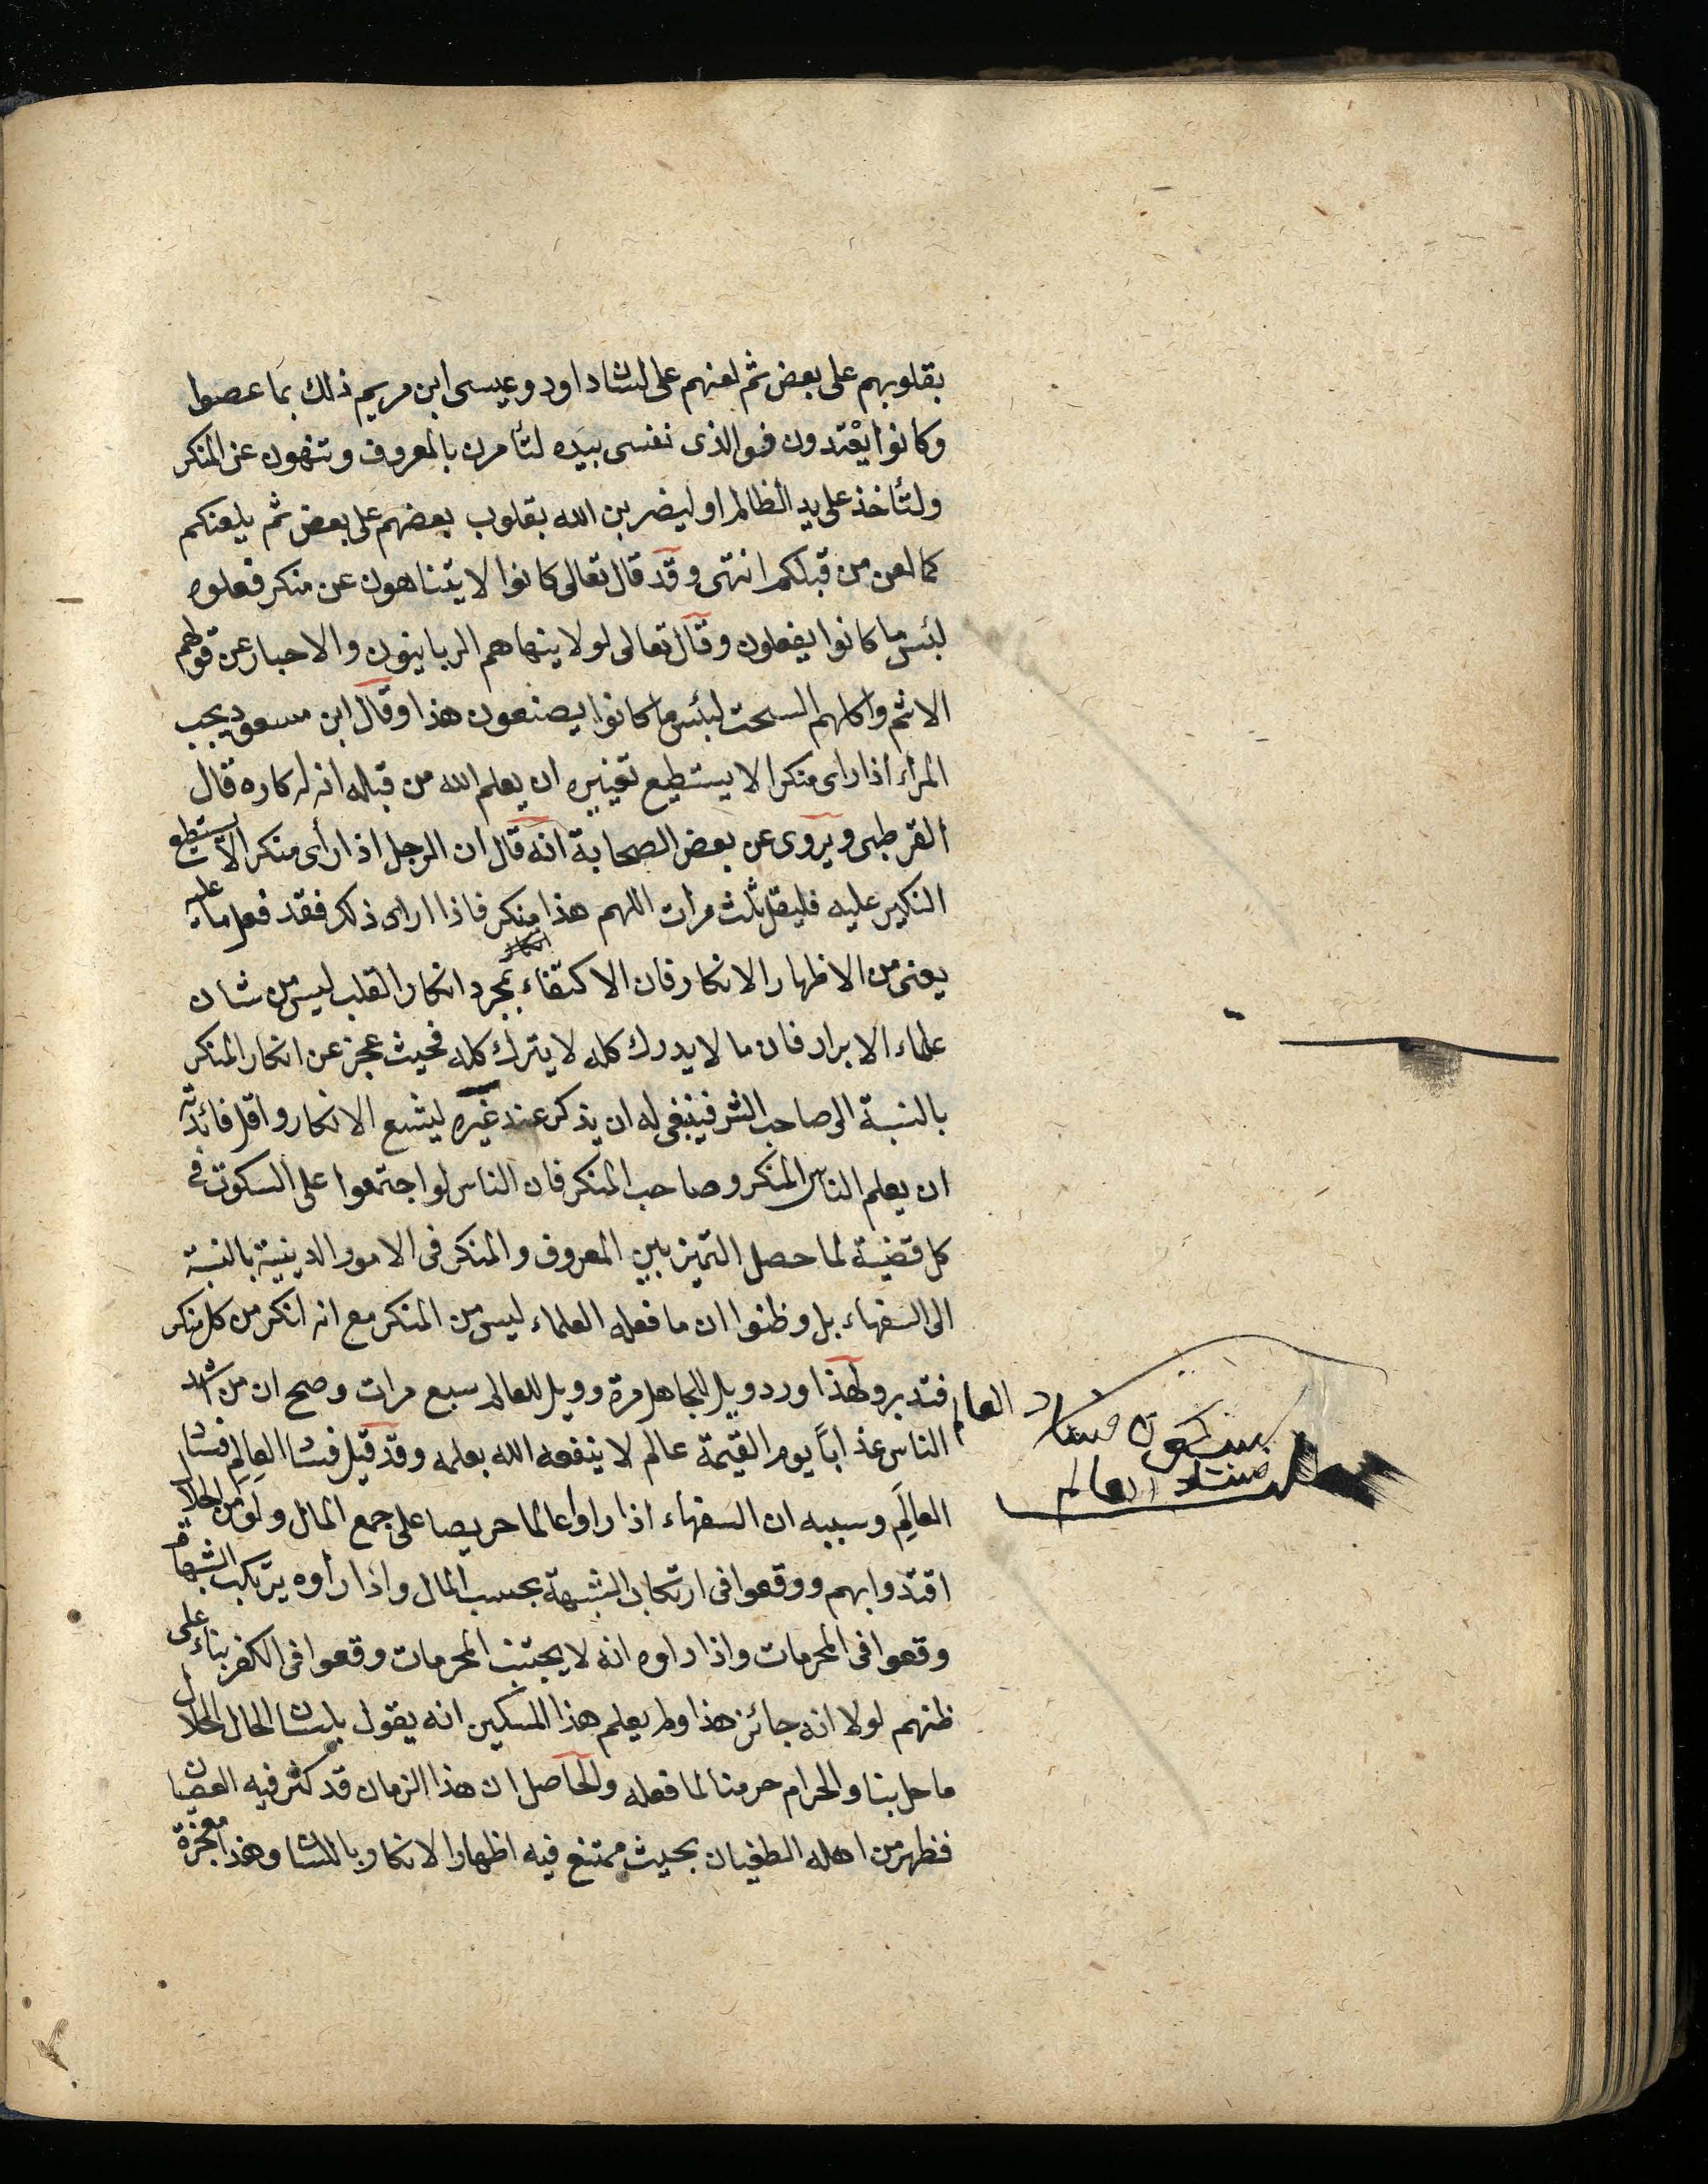 بقلوبهم على بعض ثم لعنهم على لسان داود وعيسى ابن مريم ذلك بما عصوا
وكانوا يعْتدون فوالذى نفسى بيده لتأمرن بالمعروف وتنهون عن المنكر
ولتأخذ على يد الظالم او ليضربن الله بقلوب بعضهم على بعض ثم يلعنكم
كما لعن من قبلكم انتهى وقد قال تعالى كانوا لا يتناهون عن منكر فعلوه
لبئس ما كانوا يفعلون وقال تعالى لولا ينهاهم الربانيون والاحبار عن قولهم
الاثم واكلهم السحت لبئس ما كانوا يصنعون هذا وقال ابن مسعود يجب
المراء اذا راى منكرا لا يستطيع تغييره ان يعلم الله من قبله انه له كاره قال
القرطبى ويروى عن بعض الصحابة انه قال ان الرجل اذا رأى منكرا لا يستطيع
النكير عليه فليقل ثلث مرات اللهم هذا منكر فاذا اراى ذلك فقد فعل ما عليه
يعنى من الاظهار الانكار فان الاكتفاء بمجرد انكار القلب ليس من شان
علماء الابرار فان ما لا يدرك كله لا يترك كله فحيث عجز عن انكار المنكر
بالنسبة الى صاحب الشر فينبغى له ان يذكر عند غيره ليشيع الانكار واقل فائدته
ان يعلم الناس المنكر وصاحب المنكر فان الناس لو اجتمعوا على السكوت فى
كل قضية لما حصل التميز بين المعروف والمنكر فى الامور الدينية بالنسبة
الى السفهاء بل وظنوا ان ما فعله العلماء ليس من المنكر مع انه انكر من كل منكر
فتدبر ولهذا ورد ويل للجاهل مرة وويل للعالم سبع مرات وصح ان من اشد
الناس عذاباً يوم القيمة عالم لا ينفعه الله بعلمه وقد قيل فساد العالِم فساد
العالَم وسببه ان السفهاء اذا راوا عالما حريصا على جمع المال ولو من الحلال
اقتدوا بهم ووقعوا فى ارتكاب الشبهة بحسب المال واذا رأوه يرتكب الشبهات
وقعوا فى المحرمات واذا راوه انه لا يجتنب المحرمات وقعوا فى الكفر بناء على
ظنهم لولا انه جائز هذا ولم يعلم هذا المسكين انه يقول بلسان الحال الحلال
ما حل بنا والحرام حرمنا لما فعله والحاصل ان هذا الزمان قد كثر فيه العصيان
فظهر من اهله الطغيان بحيث ممتنع فيه اظهار الانكار باللسان وهذا معجزة
فساد العالم
فساد العالم